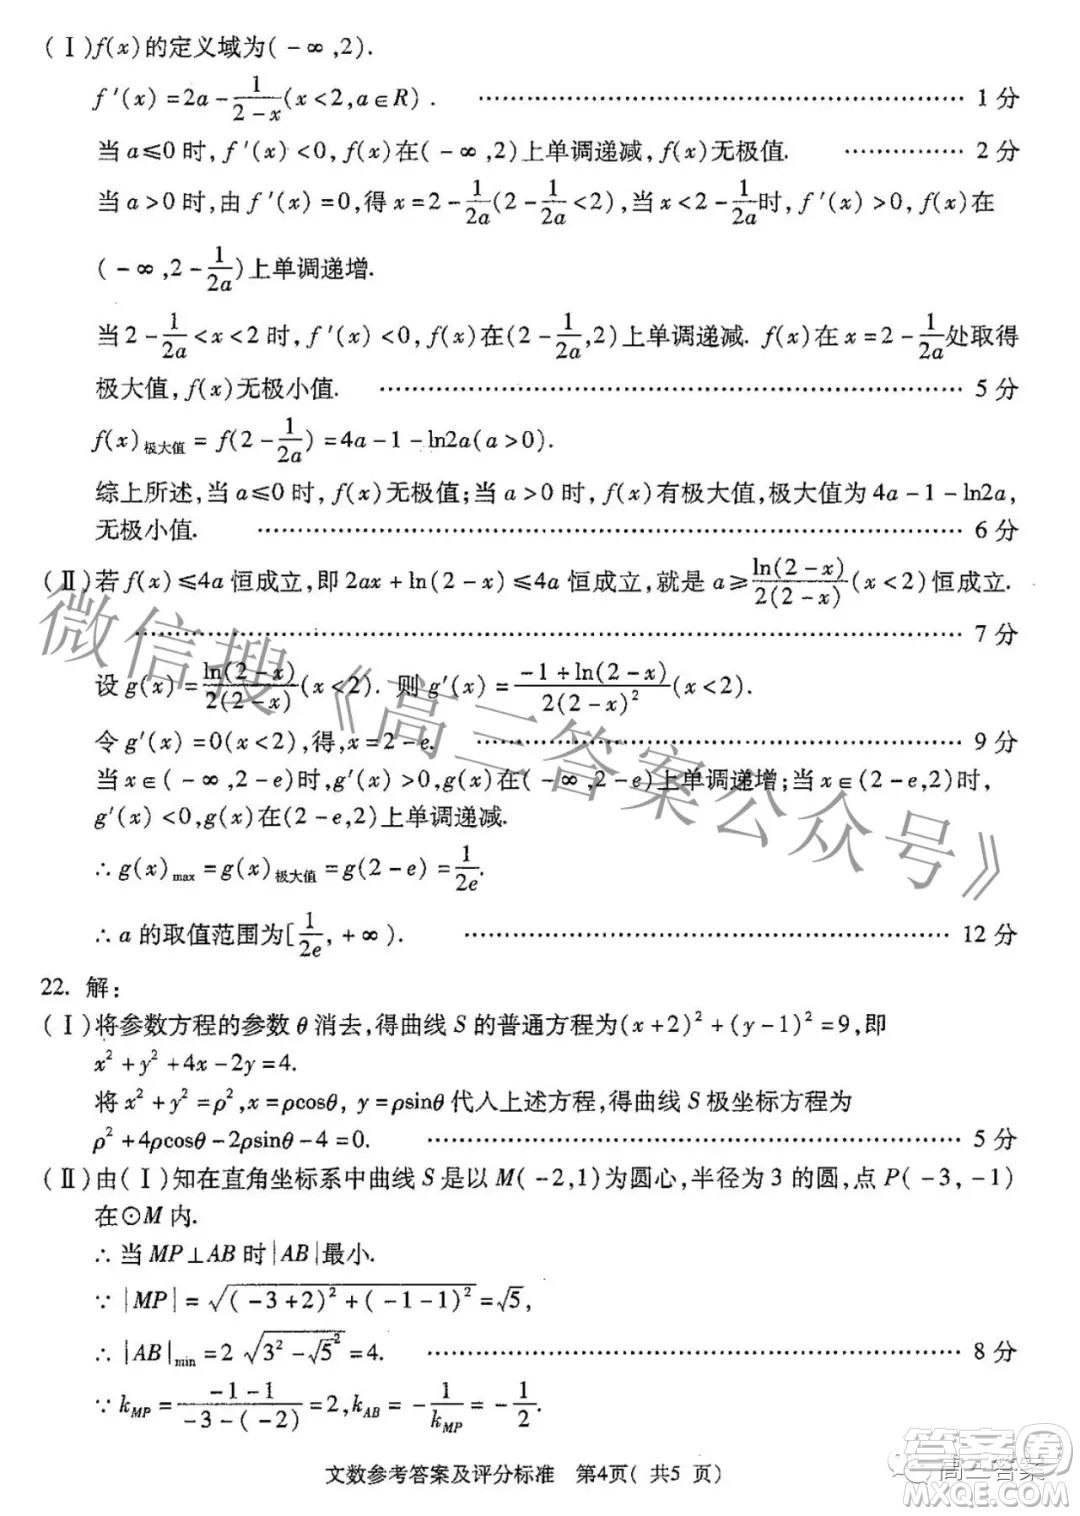 (Ⅰ)f(x)的定义域为(-∞,2).
f′(x)=2a-\frac{1}{2-x}(x<2,a∈R). ………………………… 1分
当a≤0时,f′(x)<0,f(x)在(-∞,2)上单调递减,f(x)无极值. ………… 2分
当a>0时,由f′(x)=0,得x=2-\frac{1}{2a}(2-\frac{1}{2a}<2),当x<2-\frac{1}{2a}时,f′(x)>0,f(x)在
(-∞,2-\frac{1}{2a})上单调递增.
当2-\frac{1}{2a}<x<2时,f′(x)<0,f(x)在(2-\frac{1}{2a},2)上单调递减. f(x)在x=2-\frac{1}{2a}处取得
极大值,f(x)无极小值. ………………………… 5分
f(x)极大值=f(2-\frac{1}{2a})=4a-1-ln2a(a>0).
综上所述,当a≤0时,f(x)无极值;当a>0时,f(x)有极大值,极大值为4a-1-ln2a,
无极小值. ………………………… 6分
(Ⅱ)若f(x)≤4a恒成立,即2ax+ln(2-x)≤4a恒成立,就是a≥\frac{ln(2-x)}{2(2-x)}(x<2)恒成立.
………………………… 7分
设g(x)=\frac{ln(2-x)}{2(2-x)}(x<2). 则g′(x)=\frac{-1+ln(2-x)}{2(2-x)²}(x<2).
令g′(x)=0(x<2),得,x=2-e. ………………………… 9分
当x∈(-∞,2-e)时,g′(x)>0,g(x)在(-∞,2-e)上单调递增;当x∈(2-e,2)时,
g′(x)<0,g(x)在(2-e,2)上单调递减.
∴g(x)max=g(x)极大值=g(2-e)=\frac{1}{2e}.
∴a的取值范围为[\frac{1}{2e},+∞). ………………………… 12分
22. 解:
(Ⅰ)将参数方程的参数θ消去,得曲线S的普通方程为(x+2)²+(y-1)²=9,即
x²+y²+4x-2y=4.
将x²+y²=ρ²,x=ρcosθ, y=ρsinθ代入上述方程,得曲线S极坐标方程为
ρ²+4ρcosθ-2ρsinθ-4=0. ………………………… 5分
(Ⅱ)由(Ⅰ)知在直角坐标系中曲线S是以M(-2,1)为圆心,半径为3的圆,点P(-3,-1)
在⊙M内.
∴当MP⊥AB时|AB|最小.
∵|MP|=√((-3+2)²+(-1-1)²)=√5,
∴|AB|min=2√(3²-√5²)=4. ………………………… 8分
∵k_{MP}=\frac{-1-1}{-3-(-2)}=2,k_{AB}=-\frac{1}{k_{MP}}=-\frac{1}{2}.
文数参考答案及评分标准 第4页( 共5 页)
微信搜《高三答案公众号》
高三答案
答案圈
MXQE.COM